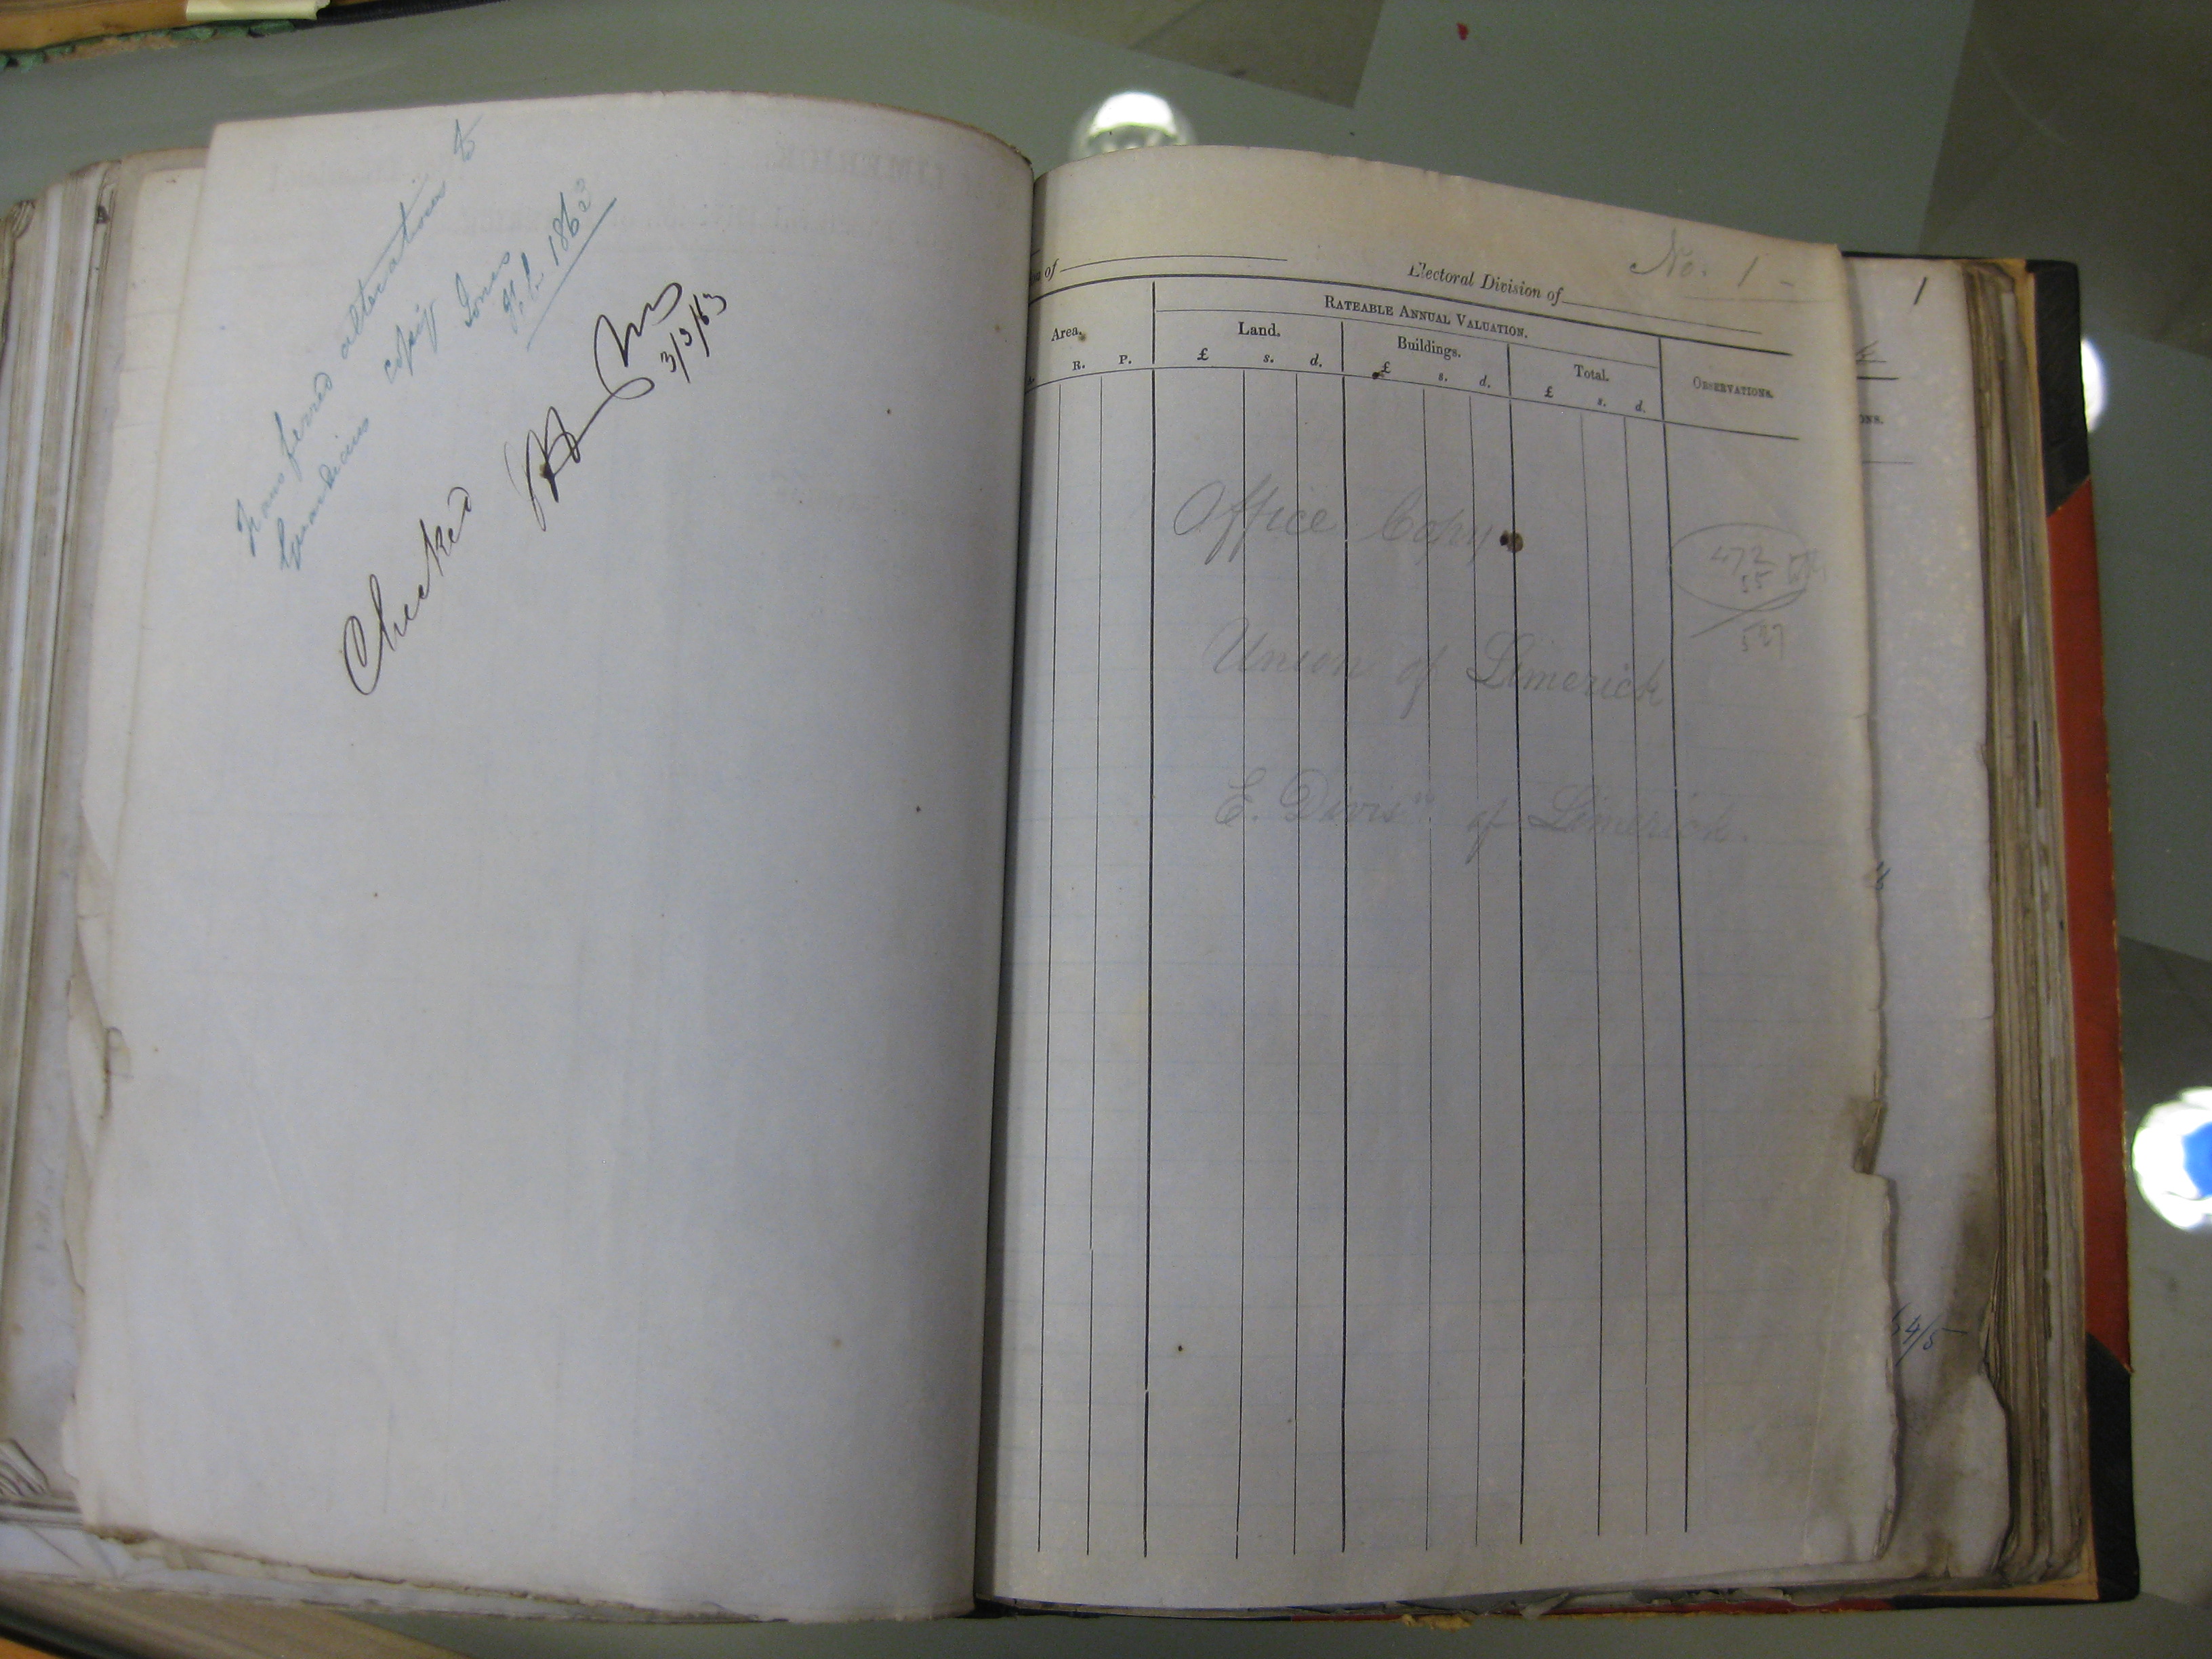 Transferred alterations to
Guardians copy Jones
Feb. 1863
Checked
3/3/63
No. 1 -
of
Electoral Division of
RATEABLE ANNUAL VALUATION.
Area.
Land.
Buildings.
Total.
OBSERVATIONS.
R. P.
£ s. d.
£ s. d.
£ s. d.
Office Copy
472
55
527
Union of Limerick
E. Divisn. of Limerick.
1
ONS.
54/5